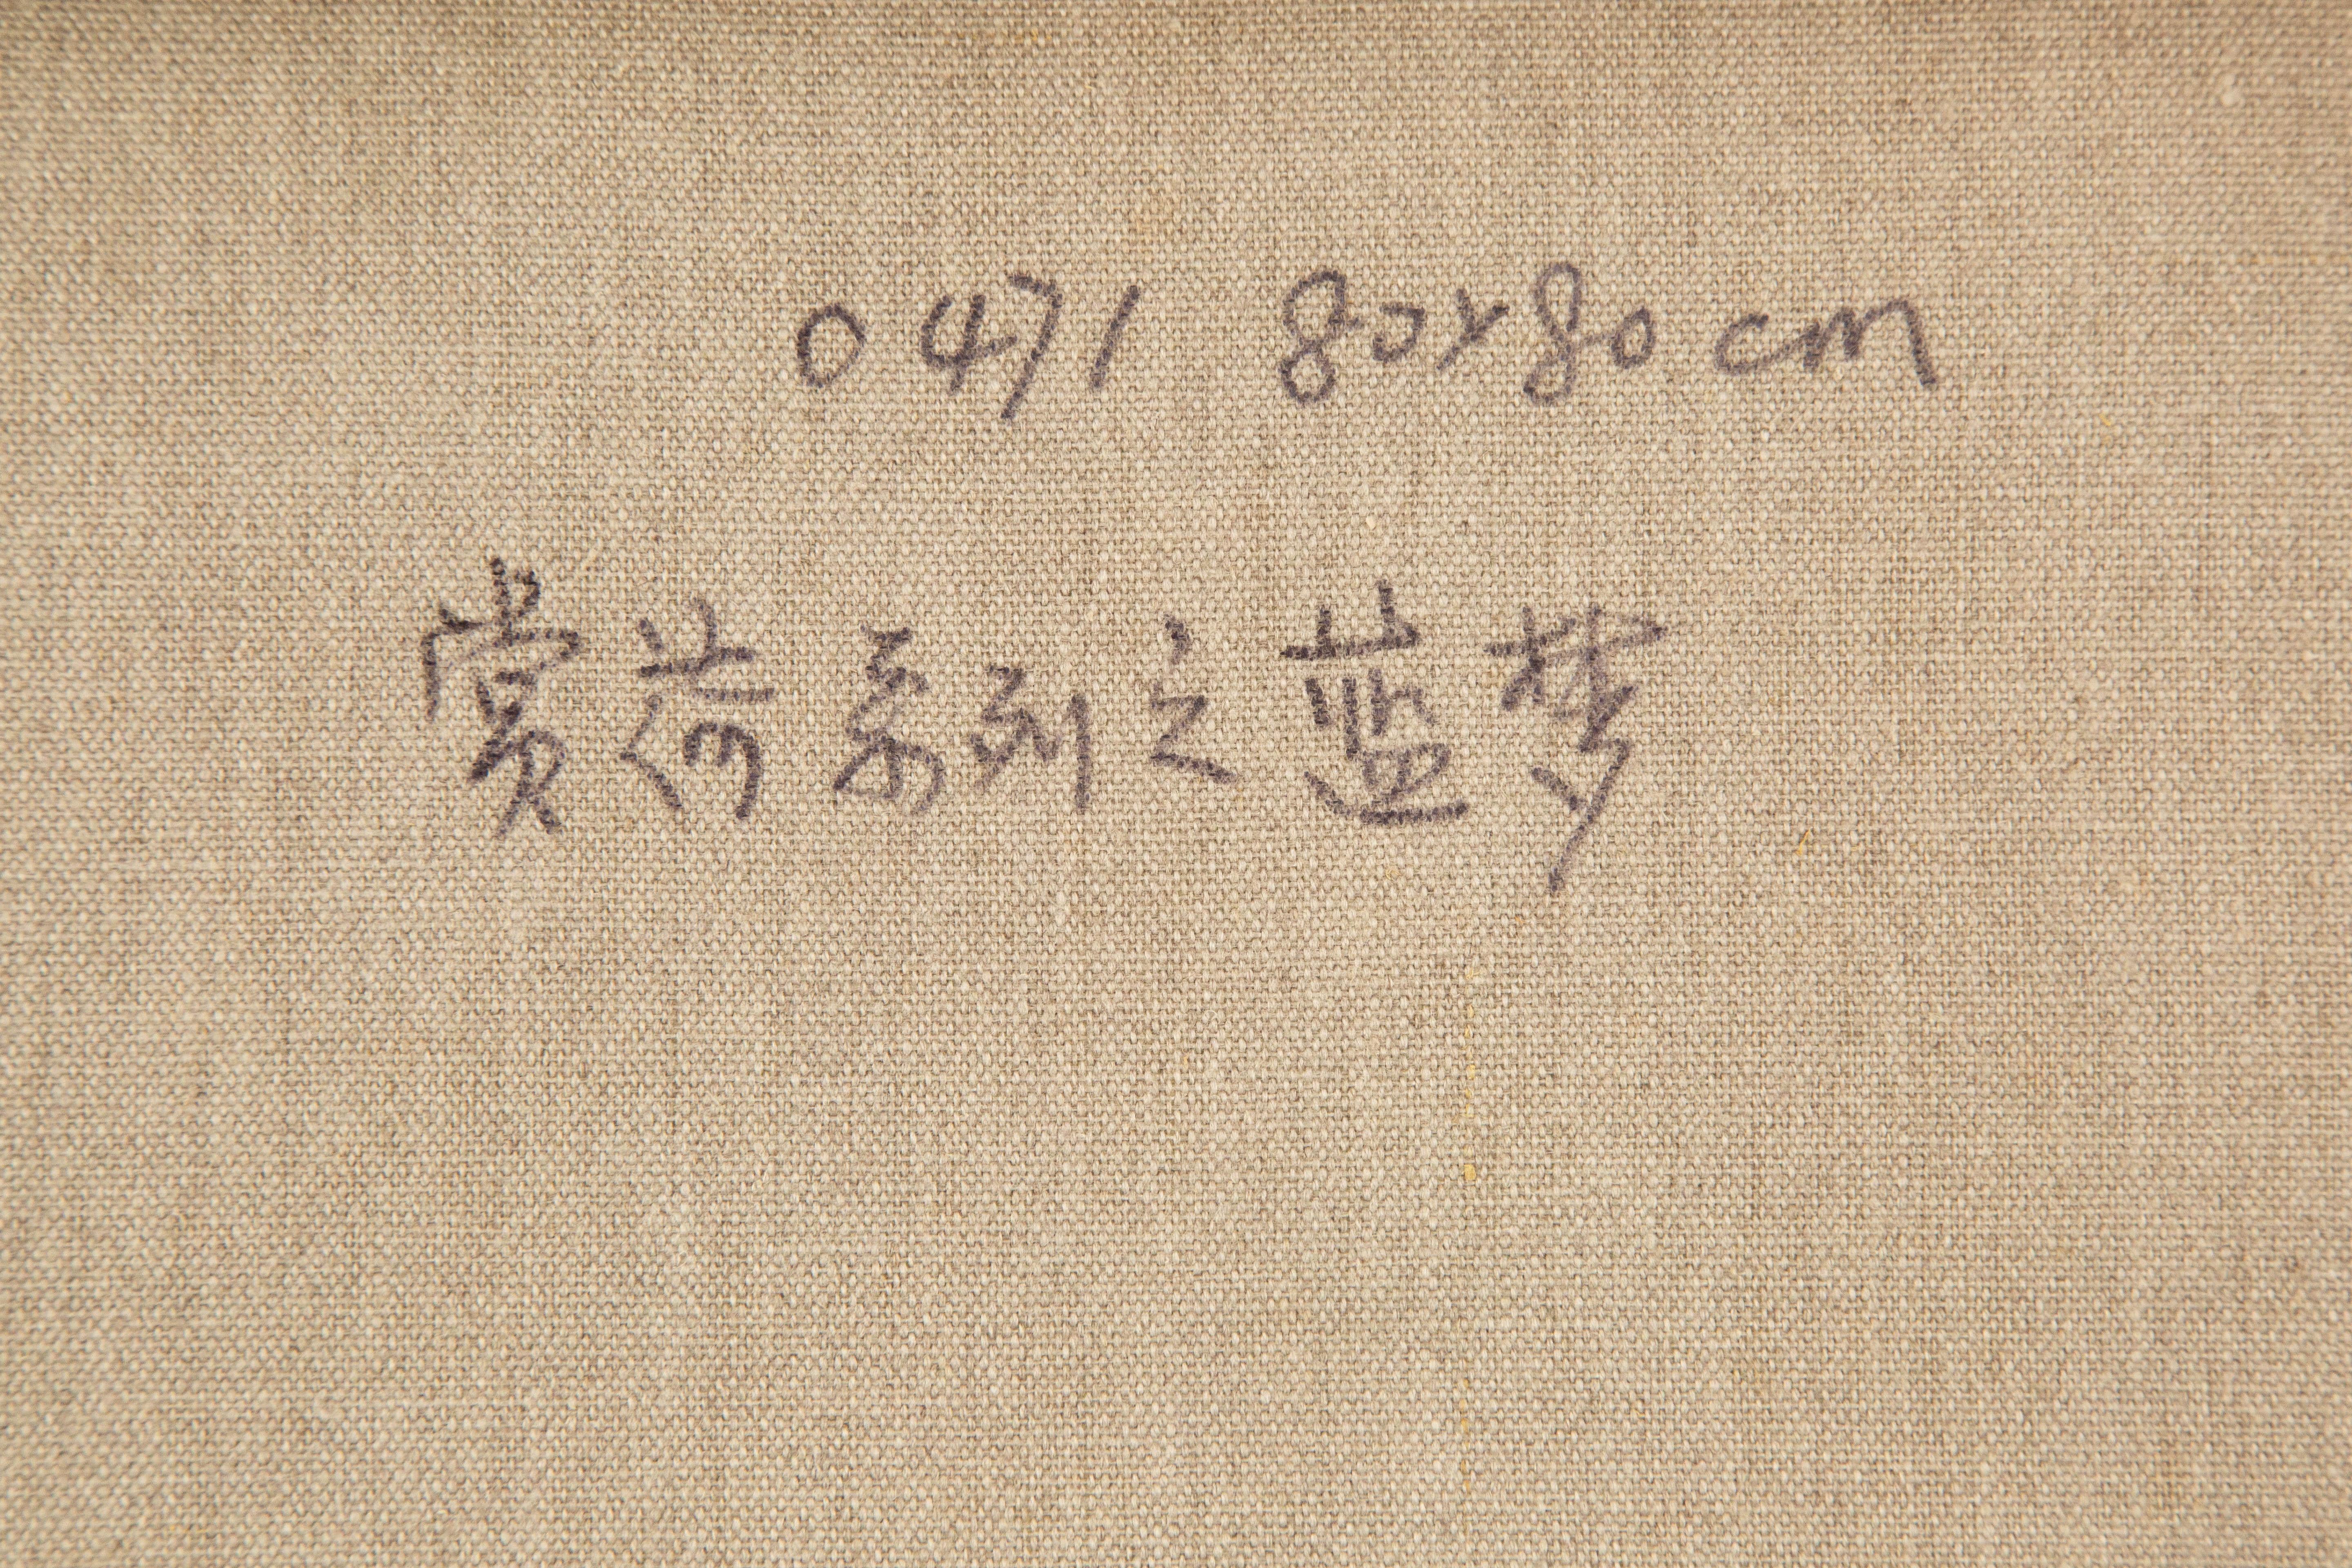 0471 80x80cm
赏荷系列之蓝梦